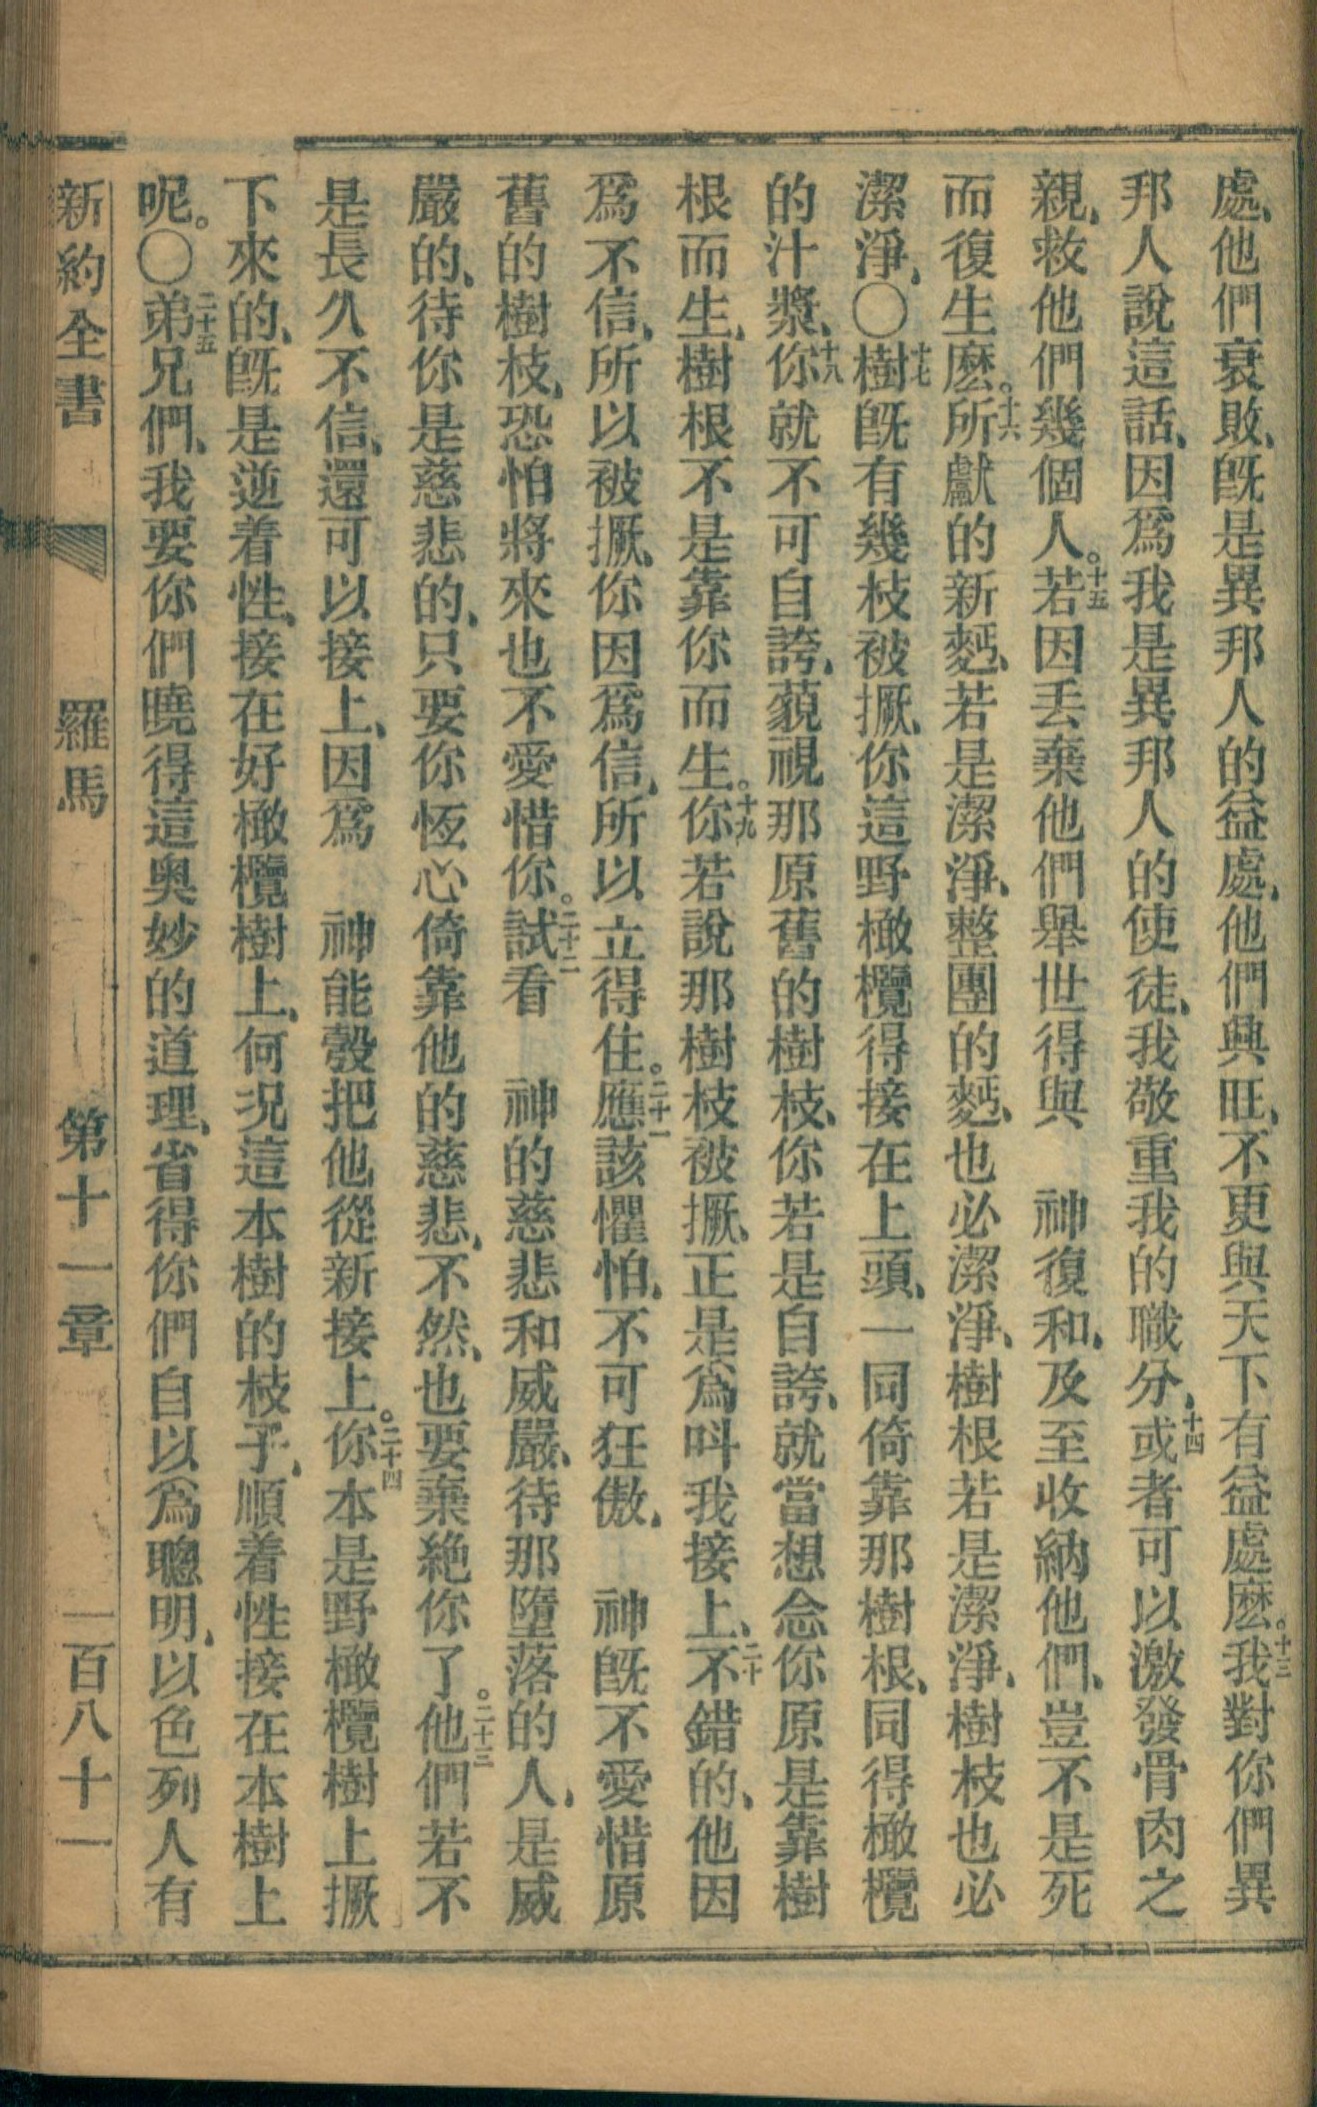 處、他們衰敗、旣是異邦人的益處、他們興旺、不更與天下有益處麽。十三我對你們異
邦人說這話、因爲我是異邦人的使徒、我敬重我的職分、十四或者可以激發骨肉之
親、救他們幾個人。十五若因丟棄他們舉世得與　神復和、及至收納他們、豈不是死
而復生麽。十六所獻的新麪、若是潔淨、整團的麪、也必潔淨、樹根若是潔淨、樹枝也必
潔淨、〇十七樹旣有幾枝被撅、你這野橄欖得接在上頭、一同倚靠那樹根、同得橄欖
的汁漿、十八你就不可自誇、藐視那原舊的樹枝、你若是自誇、就當想念你原是靠樹
根而生、樹根不是靠你而生。十九你若說那樹枝被撅、正是爲呌我接上、二十不錯的、他因
爲不信、所以被撅、你因爲信、所以立得住。二十一應該懼怕、不可狂傲、　神旣不愛惜原
舊的樹枝、恐怕將來也不愛惜你。二十二試看　神的慈悲和威嚴、待那墮落的人、是威
嚴的、待你是慈悲的、只要你恆心倚靠他的慈悲、不然、也要棄絕你了。二十三他們若不
是長久不信、還可以接上、因爲　神能彀把他從新接上。二十四你本是野橄欖樹上撅
下來的、旣是逆着性、接在好橄欖樹上、何况這本樹的枝子、順着性接在本樹上
呢。〇二十五弟兄們、我要你們曉得這奥妙的道理、省得你們自以爲聰明、以色列人有
新約全書　羅馬　第十一章　一百八十一